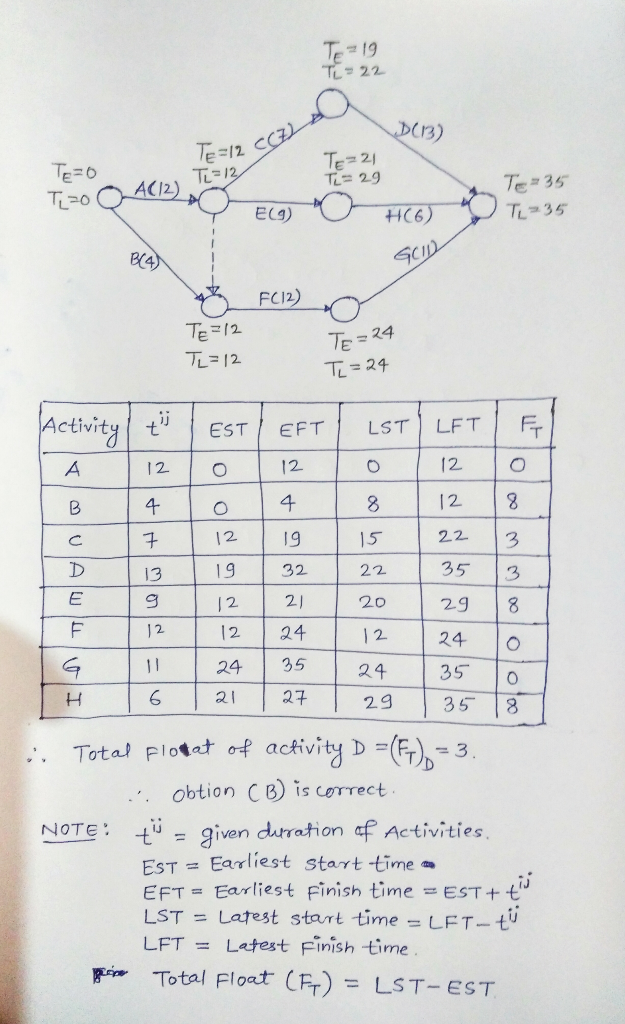 T_E = 19
T_L = 22
C(7)
D(13)
T_E = 12
T_L = 12
T_E = 21
T_L = 29
T_E = 0
T_L = 0
A(12)
E(9)
H(6)
T_E = 35
T_L = 35
B(4)
G(11)
F(12)
T_E = 12
T_L = 12
T_E = 24
T_L = 24
Activity t^ij EST EFT LST LFT F_T
A 12 0 12 0 12 0
B 4 0 4 8 12 8
C 7 12 19 15 22 3
D 13 19 32 22 35 3
E 9 12 21 20 29 8
F 12 12 24 12 24 0
G 11 24 35 24 35 0
H 6 21 27 29 35 8
∴ Total Float of activity D = (F_T)_D = 3.
∴ obtion (B) is correct.
NOTE: t^ij = given duration of Activities.
EST = Earliest start time
EFT = Earliest Finish time = EST + t^ij
LST = Latest start time = LFT - t^ij
LFT = Latest Finish time.
Total Float (F_T) = LST - EST